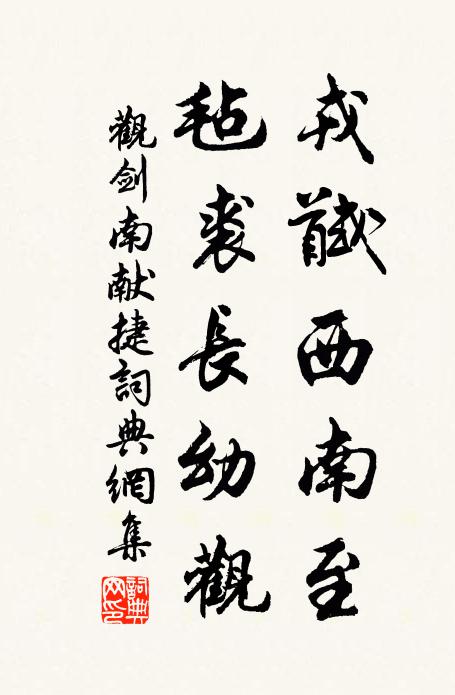 戎馘西南至
毡裘長幼觀
觀剑南献捷詞典網集
詞典網印